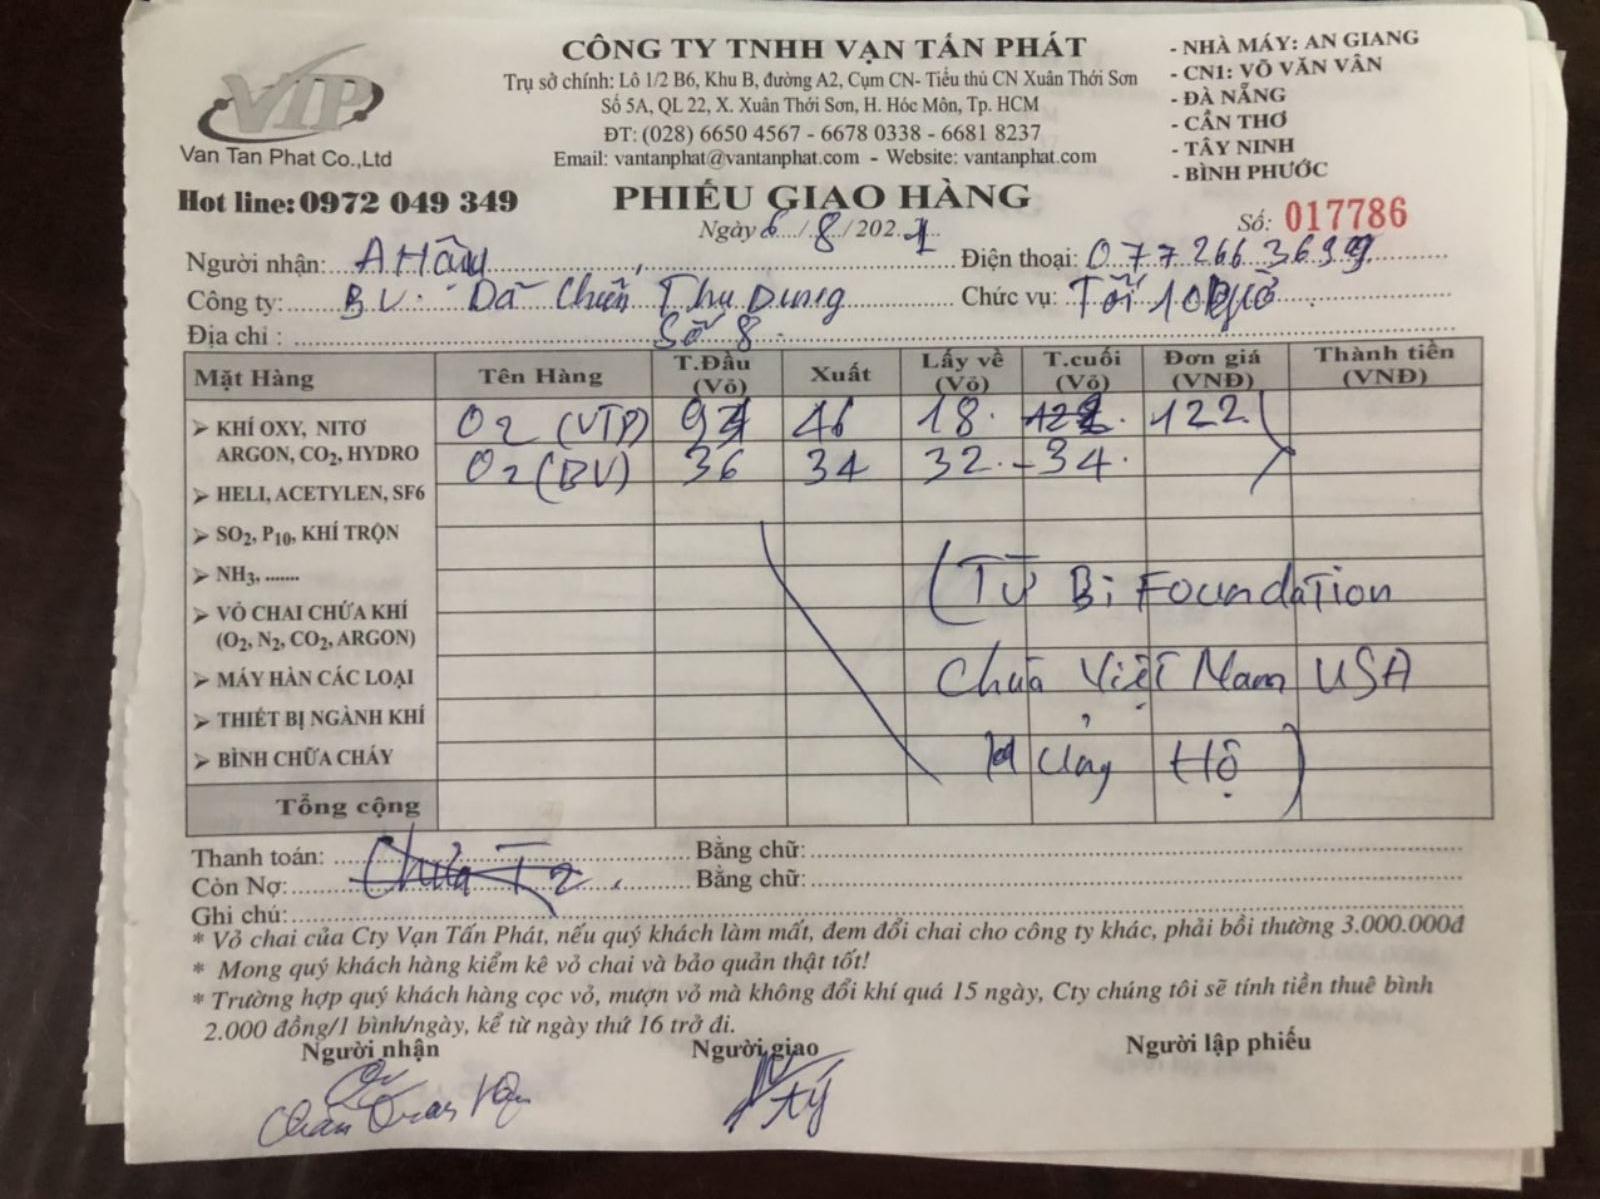 VTP
Van Tan Phat Co.,Ltd
Hot line: 0972 049 349
CÔNG TY TNHH VẠN TẤN PHÁT
Trụ sở chính: Lô 1/2 B6, Khu B, đường A2, Cụm CN- Tiểu thủ CN Xuân Thới Sơn
Số 5A, QL 22, X. Xuân Thới Sơn, H. Hóc Môn, Tp. HCM
ĐT: (028) 6650 4567 - 6678 0338 - 6681 8237
Email: vantanphat@vantanphat.com - Website: vantanphat.com
- NHÀ MÁY: AN GIANG
- CN1: VÕ VĂN VÂN
- ĐÀ NẴNG
- CẦN THƠ
- TÂY NINH
- BÌNH PHƯỚC
PHIẾU GIAO HÀNG
Ngày 6/8/2021
Số: 017786
Người nhận: A Hậu Điện thoại:
Công ty: BV. Dã Chiến Thu Dung Chức vụ: Tới
Địa chỉ: Số 8
Mặt Hàng Tên Hàng T.Đầu (Vỏ) Xuất Lấy về (Vỏ) T.cuối (Vỏ) Đơn giá (VNĐ) Thành tiền (VNĐ)
O2 (VTP) 46 18. 122
O2 (BV) 36 34 32. - 34.
➢ KHÍ OXY, NITƠ
ARGON, CO2, HYDRO
➢ HELI, ACETYLEN, SF6
➢ SO2, P10, KHÍ TRỘN
➢ NH3, .......
➢ VỎ CHAI CHỨA KHÍ
(O2, N2, CO2, ARGON)
➢ MÁY HÀN CÁC LOẠI
➢ THIẾT BỊ NGÀNH KHÍ
➢ BÌNH CHỮA CHÁY
(Từ Bi Foundation
Chùa Việt Nam USA
Ủng Hộ)
Tổng cộng
Thanh toán: Bằng chữ:
Còn Nợ: Bằng chữ:
Ghi chú:
* Vỏ chai của Cty Vạn Tấn Phát, nếu quý khách làm mất, đem đổi chai cho công ty khác, phải bồi thường 3.000.000đ
* Mong quý khách hàng kiểm kê vỏ chai và bảo quản thật tốt!
* Trường hợp quý khách hàng cọc vỏ, mượn vỏ mà không đổi khí quá 15 ngày, Cty chúng tôi sẽ tính tiền thuê bình
2.000 đồng/1 bình/ngày, kể từ ngày thứ 16 trở đi.
Người nhận Người giao Người lập phiếu
tý